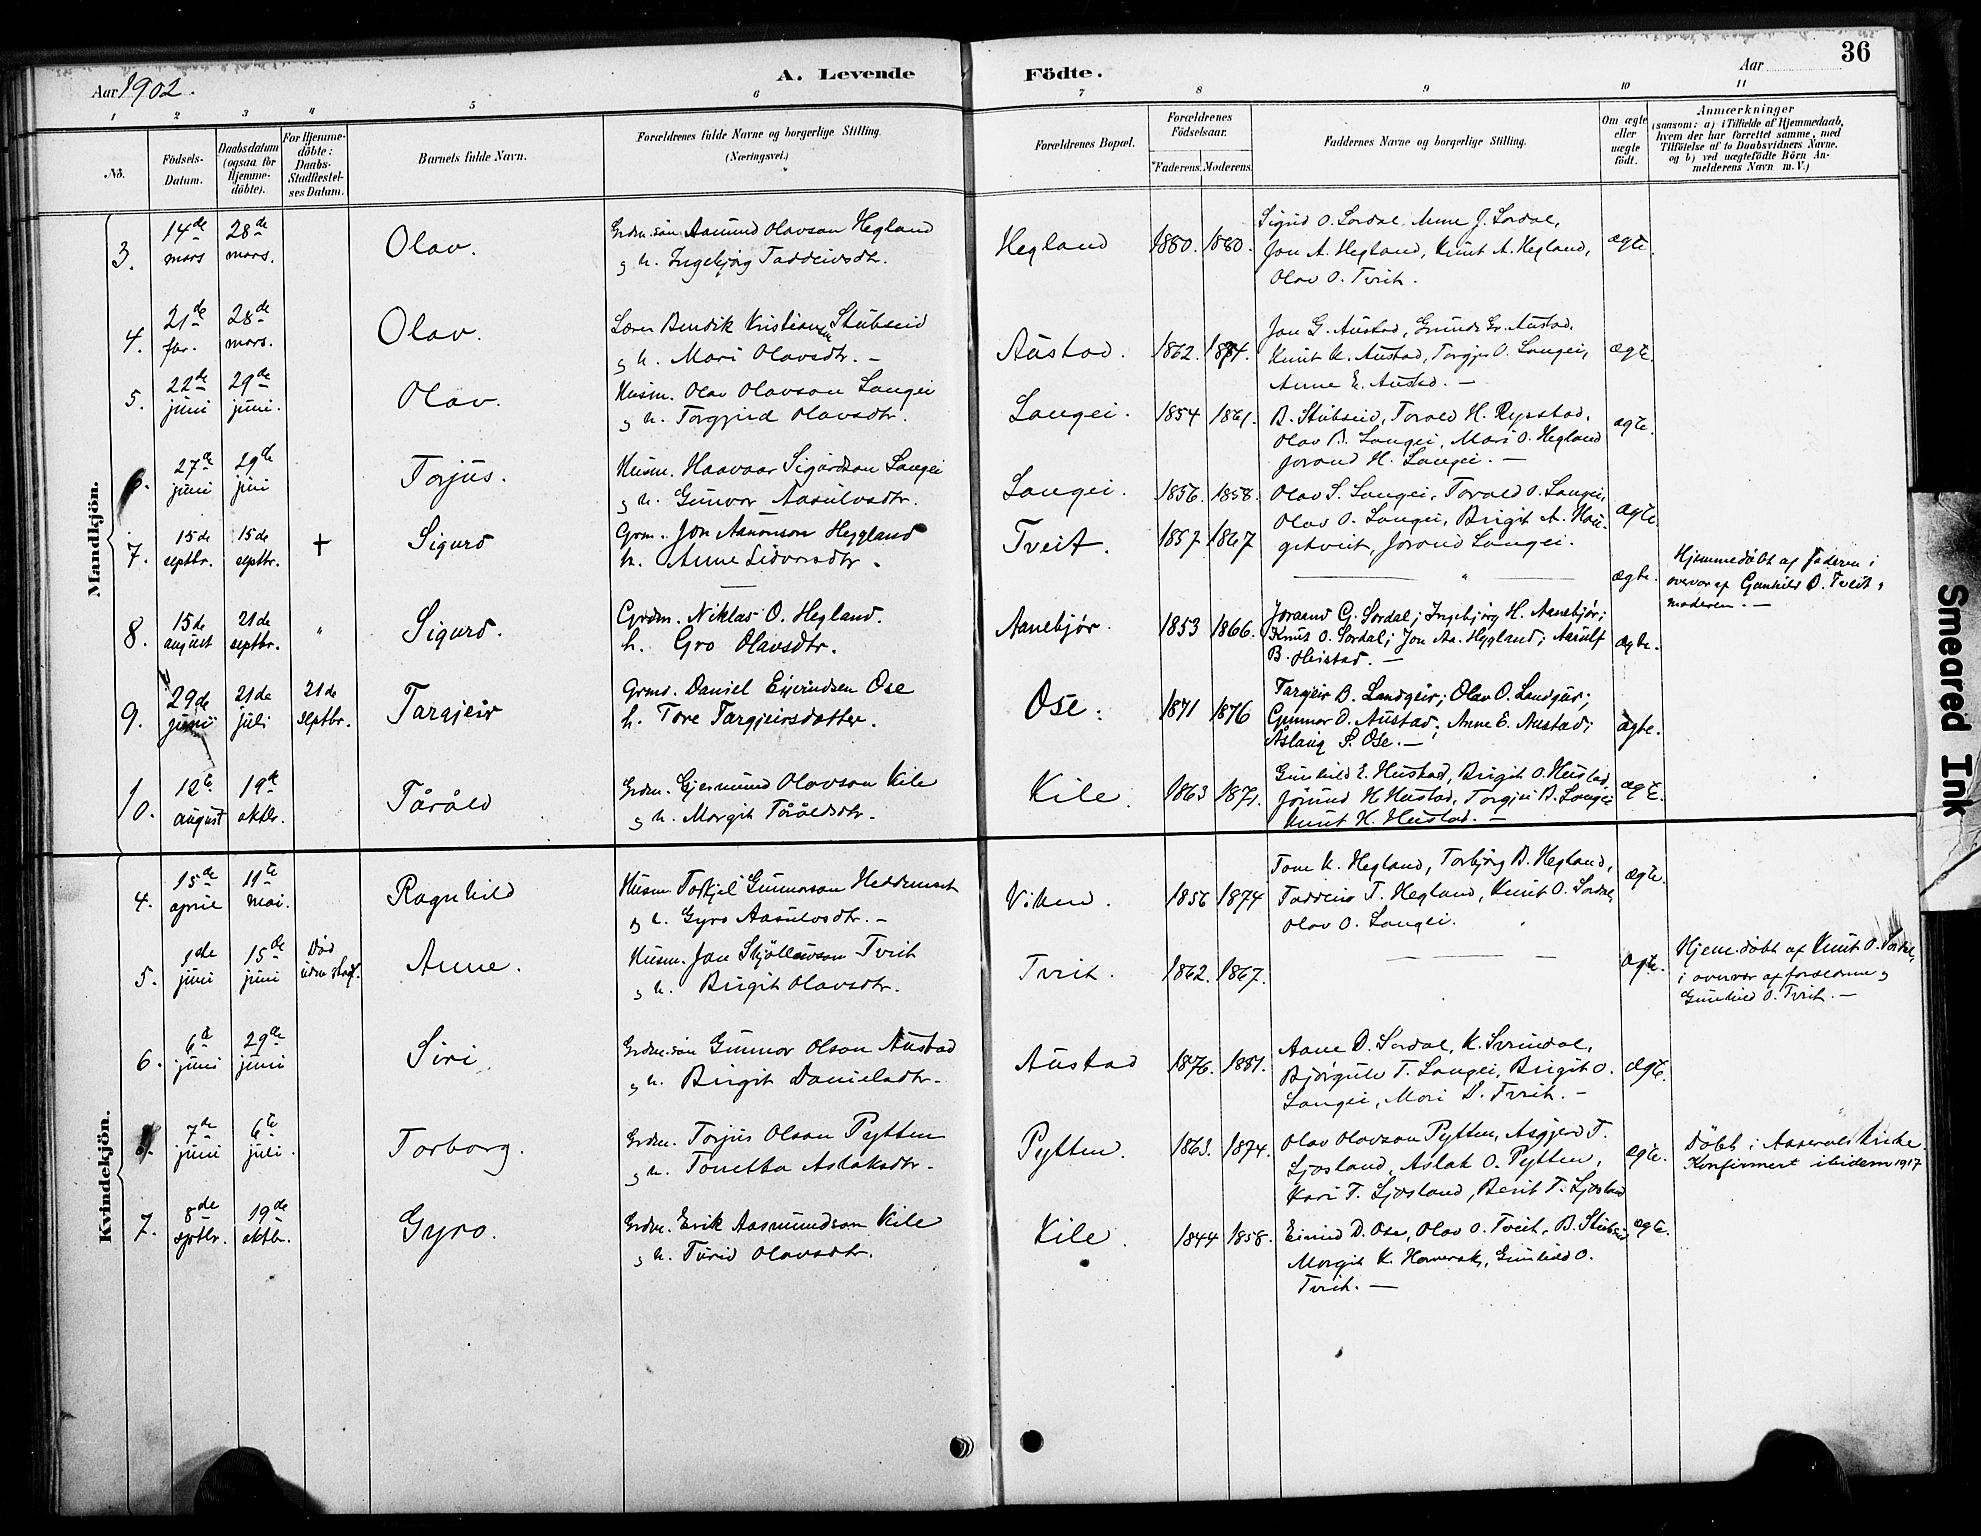 36
Aar 1902.
A. Levende Födte.
Aar
1 2 3 4 5 6 7 8 9 10 11
Nö.
Födsels-Datum.
Daabsdatum (ogsaa for Hjemme-döbte).
For Hjemme-döbte: Daabs-Stadfæstel-ses Datum.
Barnets fulde Navn.
Forældrenes fulde Navne og borgerlige Stilling. (Næringsvei.)
Forældrenes Bopæl.
Forældrenes Födselsaar.
Faderens. Moderens.
Faddernes Navne og borgerlige Stilling.
Om ægte eller uægte födt.
Anmærkninger
(saasom: a) i Tilfælde af Hjemmedaab,
hvem der har forrettet samme, med
Tilföielse af to Daabsvidners Navne.
og b) ved uægtefödte Börn An-
melderens Navn m. V.)
Mandkjön.
3. 14de mars 28de mars. Olav. Grdm. sön Aasmund Olavson Hegland
og h. Ingebjørg Taddeivsdtr. Hegland 1880. 1880.
Sigrid O. Sordal, Anne J. Sordal,
Jon A. Hegland, Knut A. Hegland,
Olav O. Tveit. ægte.
4. 21de 28de mars. Olav. Lærer Bendik Kristiansen Stubseid
og h. Mari Olavsdtr. – Austad. 1862. 1874.
Jon G. Austad, Gr. Austad,
Knut K. Austad, Torgjus O. Langei,
Anne E. Austad. – ægte.
5. 22de juni 29de juni. Olav. Husm. Olav Olavson Langei
og h. Torgjerd Olavsdtr. Langei. 1854 1861.
B. Stubseid, Torald H. Rysstad,
Olav B. Langei, Mari O. Hegland
Jorand H. Langei. – ægte.
6. 27de juni 29de juni Torjus. Husm. Haavaar Sigurdson Langei
og h. Gunvor Aasulvsdtr. Langei. 1856. 1858.
Olav S. Langei, Torald O. Langei,
Olav O. Langei, Birgit A. Hau-
getveit, Jorand Langei. ægte.
7. 15de septbr. 15de septbr. + Sigurd Grm. Jon Aanonson Heggland
h. Anne Sidversdtr. Tveit. 1857 1867 ægte.
Hjemmedöbt af Faderen i
overvær af Gunhild O. Tveit &
moderen. –
8. 15de august 21de septbr. " Sigurd. Grdm. Niklas O. Hegland.
h. Gro Olavsdtr. Aanebjør. 1853 1866.
Joraand G. Sordal; Ingebjörg H. Aanebjør;
Knut O. Sordal; Jon Aa. Heggland; Aasulf
B. Heistad. – ægte.
9. 29de juni 21de juli 21de septbr. Targjeir Grmd. Daniel Eivindsen Ose
h. Tore Targjeirsdatter. Ose. 1871 1876
Targjeir B. Landgeir; Olav O. Landgeir;
Gunnar O. Austad; Anne E. Austad;
Åslaug S. Ose. – ægte.
10. 12te august 19de oktbr. Tåråld Grdm. Gjermund Olavson Kile
og h. Margit Tåråldsdtr. Kile. 1863 1871.
Gunhild E. Heistad, Birgit O. Heistad,
Jörund H. Heistad, Torgjei B. Langei
Knut H. Heistad. – ægte.
Kvindekjön.
4. 15de april 11te mai. Ragnhild Husm. Torkjel Gunnarson Heddemset
og h. Gyro Aasulvsdtr. – Viken. 1856 1874
Tone K. Hegland, Torbjørg B. Hegland,
Taddeiv T. Hegland, Knut O. Sordal,
Olav O. Langei. ægte.
5. 1ste juni 15de juni Död uden stadf. Anne. Husm. Jon Skjöllevson Tveit
og h. Birgit Olavsdtr. Tveit. 1862. 1867. ægte.
Hjemedöbt af Knut O. Sordal,
i overvær af forældrene og
Gunhild O. Tveit. –
6. 6te juni 29de juni Siri. Grdm. sön Gunnar Olson Austad
og h. Birgit Danielsdtr. Austad 1876. 1881.
Aane D. Sordal, K. Sveindal,
Bjørgulv T. Langei, Birgit O.
Langei, Mari D. Tveit. – ægte.
7de juni 6te juli. Torborg. Grdm. Torjus Olson Pytten
og h. Tonetta Aslaksdtr. Pytten. 1863. 1874.
Olav Olavson Pytten, Asgjerd T.
Ljosland, Aslak O. Pytten,
Kari T. Ljosland, Berit T. Ljosland ægte.
Döbt i Aaseral Kirke
Konfirmert ibidem 1917
7. 8de septbr. 19de oktbr. Gyro. Grdm. Erik Aasmundson Kile
og h. Turid Olavsdtr. Kile. 1844 1858.
Eivind D. Ose, Olav O. Tveit, B. Stubseid,
Margit K. Homersk, Gunhild O.
Tveit. – ægte.
Smeared Ink